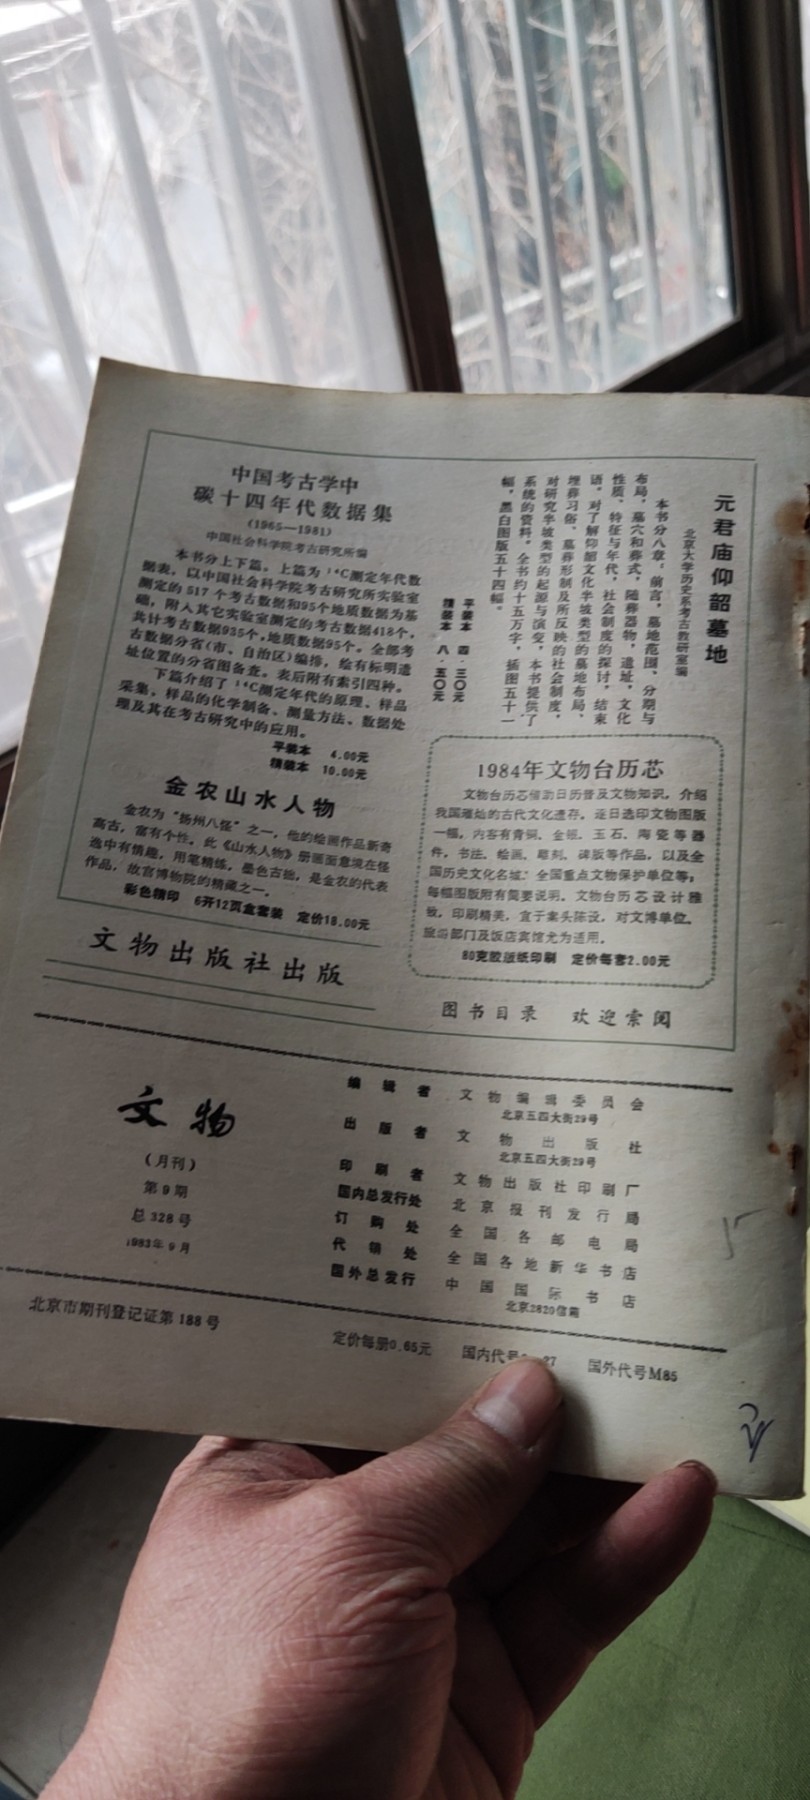 中国考古学中
碳十四年代数据集
(1965—1981)
中国社会科学院考古研究所编
本书分上下篇。上篇为¹⁴C测定年代数
据表，以中国社会科学院考古研究所实验室
测定的517个考古数据和95个地质数据为基
础，附入其它实验室测定的考古数据418个，
共计考古数据935个，地质数据95个。全部考
古数据分省(市、自治区)编排，绘有标明遗
址位置的分省图备查。表后附有索引四种。
下篇介绍了¹⁴C测定年代的原理、样品
采集，样品的化学制备、测量方法、数据处
理及其在考古研究中的应用。
平装本 4.00元
精装本 10.00元
金农山水人物
金农为“扬州八怪”之一，他的绘画作品新奇
高古，富有个性。此《山水人物》册画面意境在怪
逸中有情趣，用笔精练，墨色古拙，是金农的代表
作品，故宫博物院的精藏之一。
彩色精印 6开12页盒套装 定价18.00元
文物出版社出版
元君庙仰韶墓地
北京大学历史系考古教研室编
本书分八章：前言，墓地范围、分期与
布局，墓穴和葬式，随葬器物，遗址，文化
性质、特征与年代，社会制度的探讨，结束
语。对了解仰韶文化半坡类型的墓地布局、
埋葬习俗、墓葬形制及所反映的社会制度，
对研究半坡类型的起源与演变，本书提供了
系统的资料。全书约十五万字，插图五十一
幅，黑白图版五十四幅。
平装本 四·三〇元
精装本 八·五〇元
1984年文物台历芯
文物台历芯借助日历普及文物知识，介绍
我国璀灿的古代文化遗存。逐日选印文物图版
一幅，内容有青铜、金银、玉石、陶瓷等器
件，书法、绘画、雕刻、碑版等作品，以及全
国历史文化名城、全国重点文物保护单位等；
每幅图版附有简要说明。文物台历芯设计雅
致，印刷精美，宜于案头陈设，对文博单位、
旅游部门及饭店宾馆尤为适用。
80克胶版纸印刷 定价每套2.00元
图书目录 欢迎索阅
文物
(月刊)
第9期
总328号
1983年9月
编辑者 文物编辑委员会
北京五四大街29号
出版者 文物出版社
北京五四大街29号
印刷者 文物出版社印刷厂
国内总发行处 北京报刊发行局
订购处 全国各邮电局
代销处 全国各地新华书店
国外总发行 中国国际书店
北京2820信箱
北京市期刊登记证第188号
定价每册0.65元 国内代号 27 国外代号M85